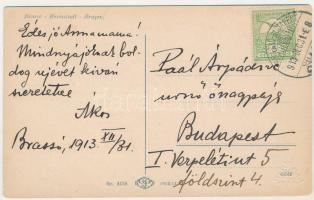 Brassó - Kronstadt - Braşov.
Édes jó Annamama!
Mindnyájóknak bol-
dog újévet kiván
szeretettel
Ákos
Brassó, 1913. XII/31.
Paál Árpádné
urnő őnagysága
Budapest
I. Verpeléti út 5
földszint 4.